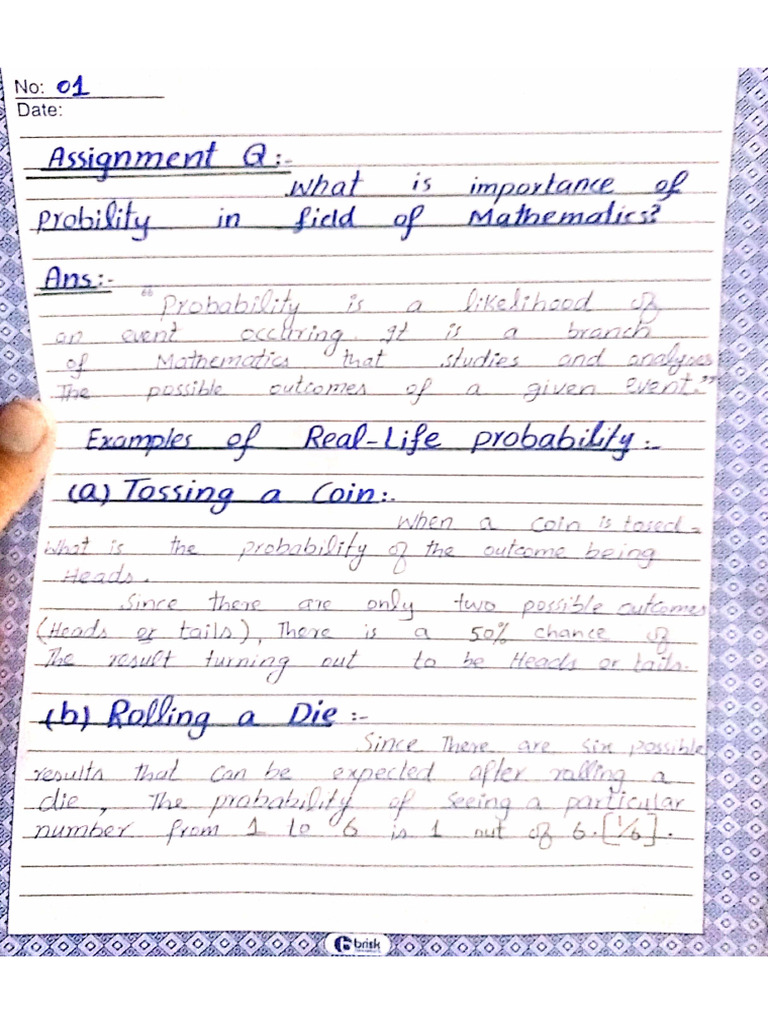 No: 01
Date:
Assignment Q:-
What is importance of
Probility in field of Mathematics?
Ans:-
"Probability is a likelihood of
an event occuring. It is a branch
of Mathematics that studies and analyses
The possible outcomes of a given event."
Examples of Real-Life probability:-
(a) Tossing a Coin:-
When a coin is tosed -
What is the probability of the outcome being
Heads.
Since there are only two possible outcomes
(Heads or tails), There is a 50% chance of
The result turning out to be Heads or tails.
(b) Rolling a Die :-
Since There are six possible
results that can be expected after rolling a
die, The probability of seeing a particular
number from 1 to 6 is 1 out of 6. [1/6].
brisk